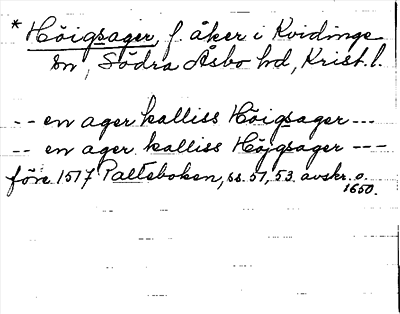 * Höigsager, f. åker i Kvidinge
sn, Södra Åsbo hd, Krist. l.
-- en ager kalliss Höigsager ---
-- en ager kalliss Höjgsager ---
före 1517 Palteboken, ss. 51, 53 avskr. o.
1650.